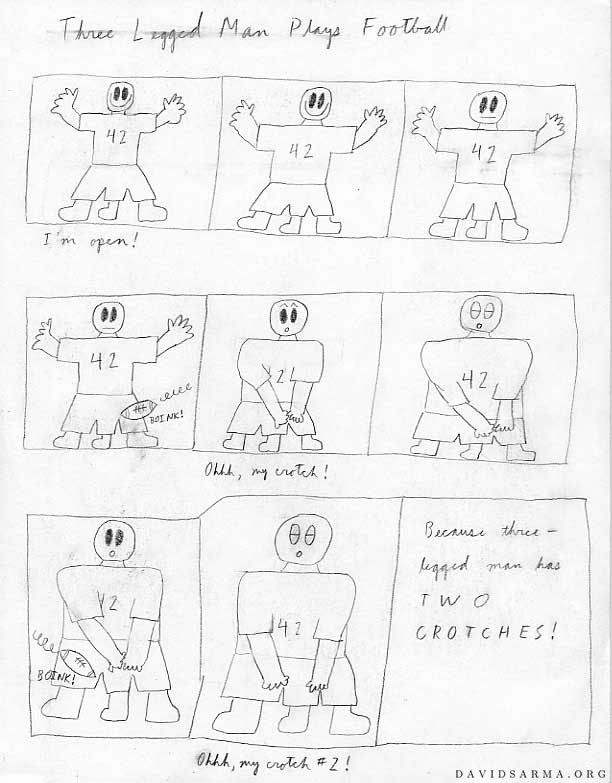 Three Legged Man Plays Football
42
42
42
I'm open!
42
BOINK!
2
42
Ohhh, my crotch!
2
BOINK!
42
Because three-
legged man has
TWO
CROTCHES!
Ohhh, my crotch #2!
DAVIDSARMA.ORG